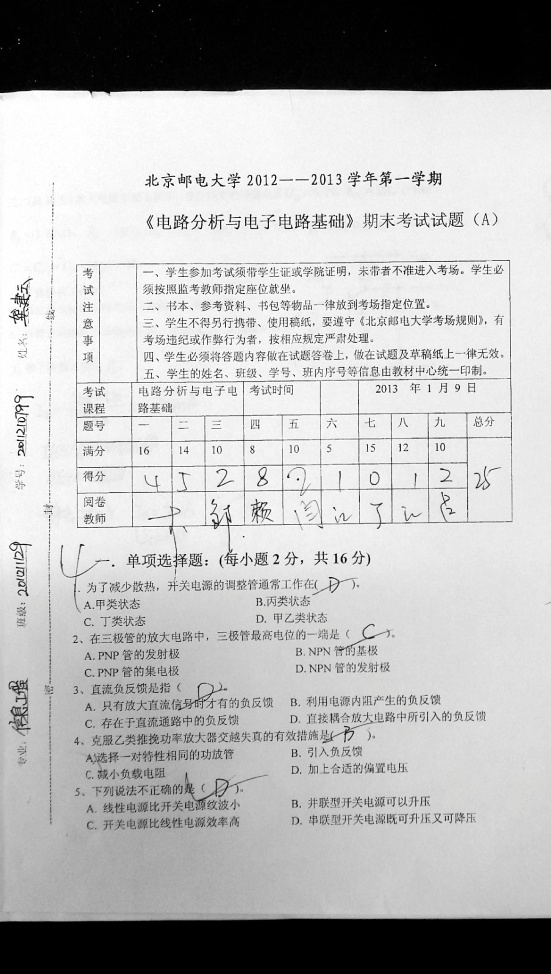 北京邮电大学2012——2013学年第一学期
《电路分析与电子电路基础》期末考试试题（A）
考试注意事项
一、学生参加考试须带学生证或学院证明，未带者不准进入考场。学生必
须按照监考教师指定座位就坐。
二、书本、参考资料、书包等物品一律放到考场指定位置。
三、学生不得另行携带、使用稿纸，要遵守《北京邮电大学考场规则》，有
考场违纪或作弊行为者，按相应规定严肃处理。
四、学生必须将答题内容做在试题答卷上，做在试题及草稿纸上一律无效。
五、学生的姓名、班级、学号、班内序号等信息由教材中心统一印制。
考试课程 电路分析与电子电路基础 考试时间 2013 年 1 月 9 日
题号 一 二 三 四 五 六 七 八 九 总分
满分 16 14 10 8 10 5 15 12 10
得分 4 5 2 8 2 1 0 1 2 25
阅卷教师
4
一．单项选择题：(每小题 2 分，共 16 分)
1. 为了减少散热，开关电源的调整管通常工作在( D )。
A.甲类状态 B.丙类状态
C. 丁类状态 D. 甲乙类状态
2、在三极管的放大电路中，三极管最高电位的一端是（ C ）。
A. PNP 管的发射极 B. NPN 管的基极
C. PNP 管的集电极 D. NPN 管的发射极
3、直流负反馈是指（ D ）。
A. 只有放大直流信号时才有的负反馈 B. 利用电源内阻产生的负反馈
C. 存在于直流通路中的负反馈 D. 直接耦合放大电路中所引入的负反馈
4、克服乙类推挽功率放大器交越失真的有效措施是( B )。
A.选择一对特性相同的功放管 B. 引入负反馈
C.减小负载电阻 D. 加上合适的偏置电压
5、下列说法不正确的是（ D ）。
A. 线性电源比开关电源纹波小 B. 并联型开关电源可以升压
C. 开关电源比线性电源效率高 D. 串联型开关电源既可升压又可降压
姓名：
学号：2011210799
班级：2011211129
专业：信息工程
线
封
密